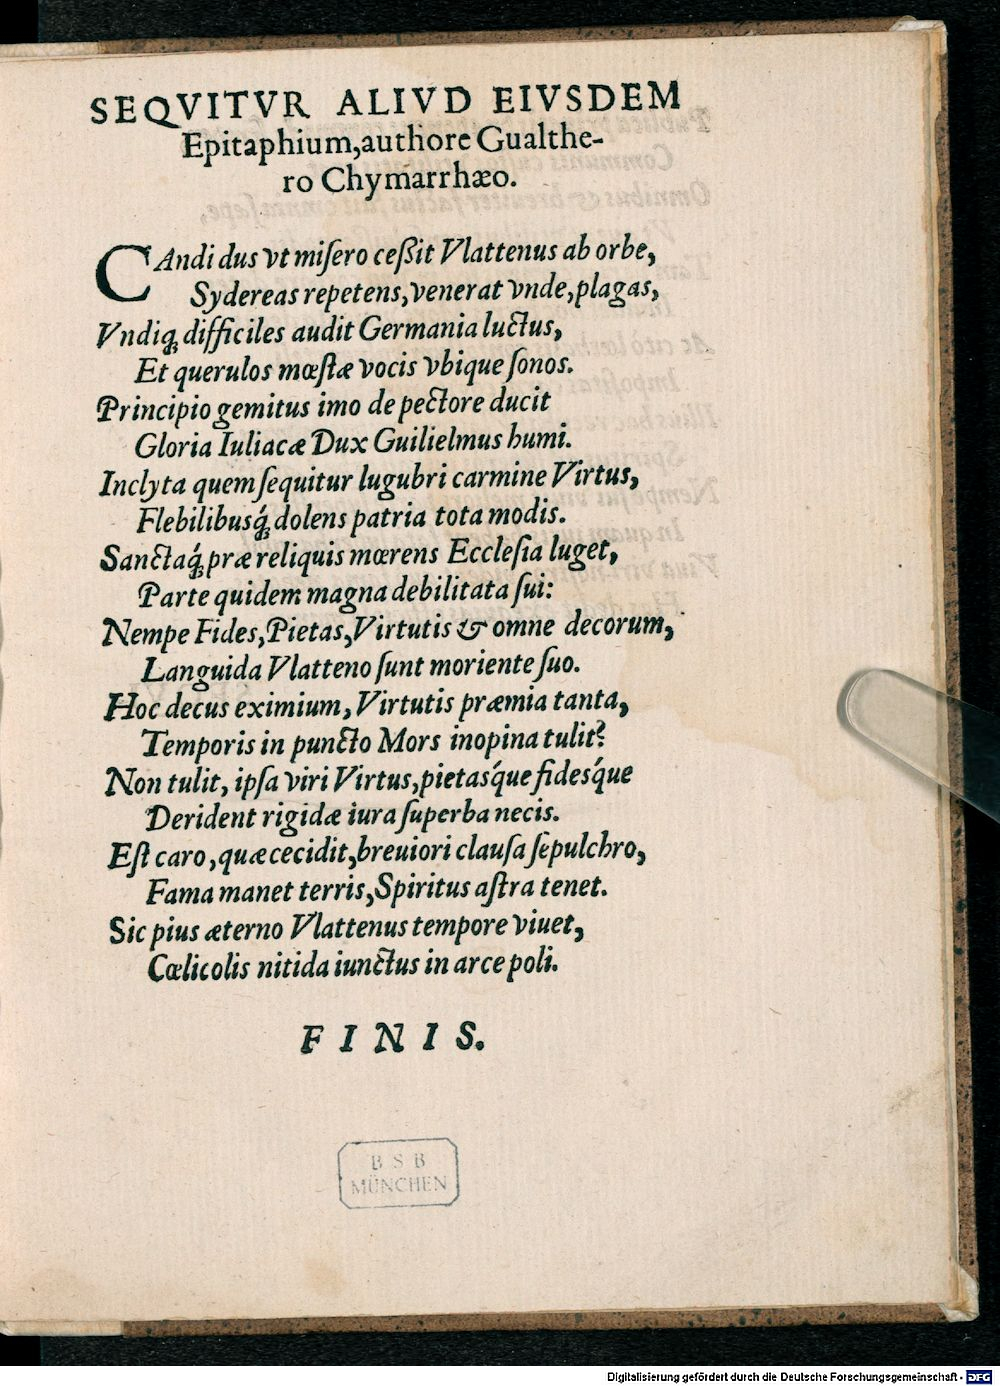 SEQVITVR ALIVD EIVSDEM
Epitaphium,authore Gualthe-
ro Chymarrhæo.
CAndi dus vt miſero ceßit Vlattenus ab orbe,
Sydereas repetens,venerat vnde,plagas,
Vndiq; difficiles audit Germania luctus,
Et querulos mœſtæ vocis vbique ſonos.
Principio gemitus imo de pectore ducit
Gloria Iuliacæ Dux Guilielmus humi.
Inclyta quem ſequitur lugubri carmine Virtus,
Flebilibusq́; dolens patria tota modis.
Sanctaq́; præ reliquis mœrens Eccleſia luget,
Parte quidem magna debilitata ſui:
Nempe Fides,Pietas,Virtutis & omne decorum,
Languida Vlatteno ſunt moriente ſuo.
Hoc decus eximium, Virtutis præmia tanta,
Temporis in puncto Mors inopina tulit?
Non tulit, ipſa viri Virtus,pietasq́ue fidesq́ue
Derident rigidæ iura ſuperba necis.
Eſt caro,quæ cecidit,breuiori clauſa ſepulchro,
Fama manet terris,Spiritus aſtra tenet.
Sic pius æterno Vlattenus tempore viuet,
Cœlicolis nitida iunctus in arce poli.
FINIS.
BSB
MÜNCHEN
Digitalisierung gefördert durch die Deutsche Forschungsgemeinschaft - DFG